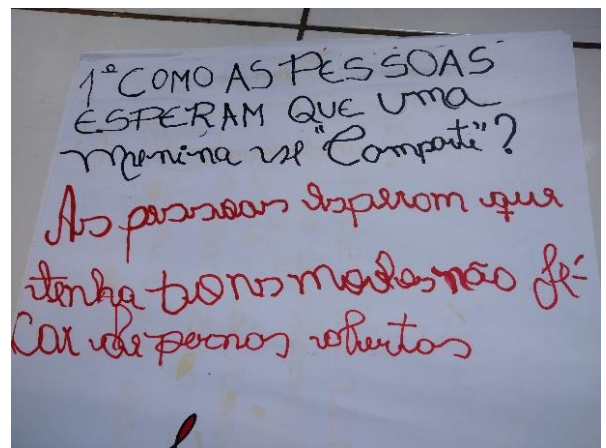 1º COMO AS PESSOAS
ESPERAM QUE UMA
menina se "Comporte"?
As pessoas esperam que
tenha bons modos não fi-
car de pernas abertas